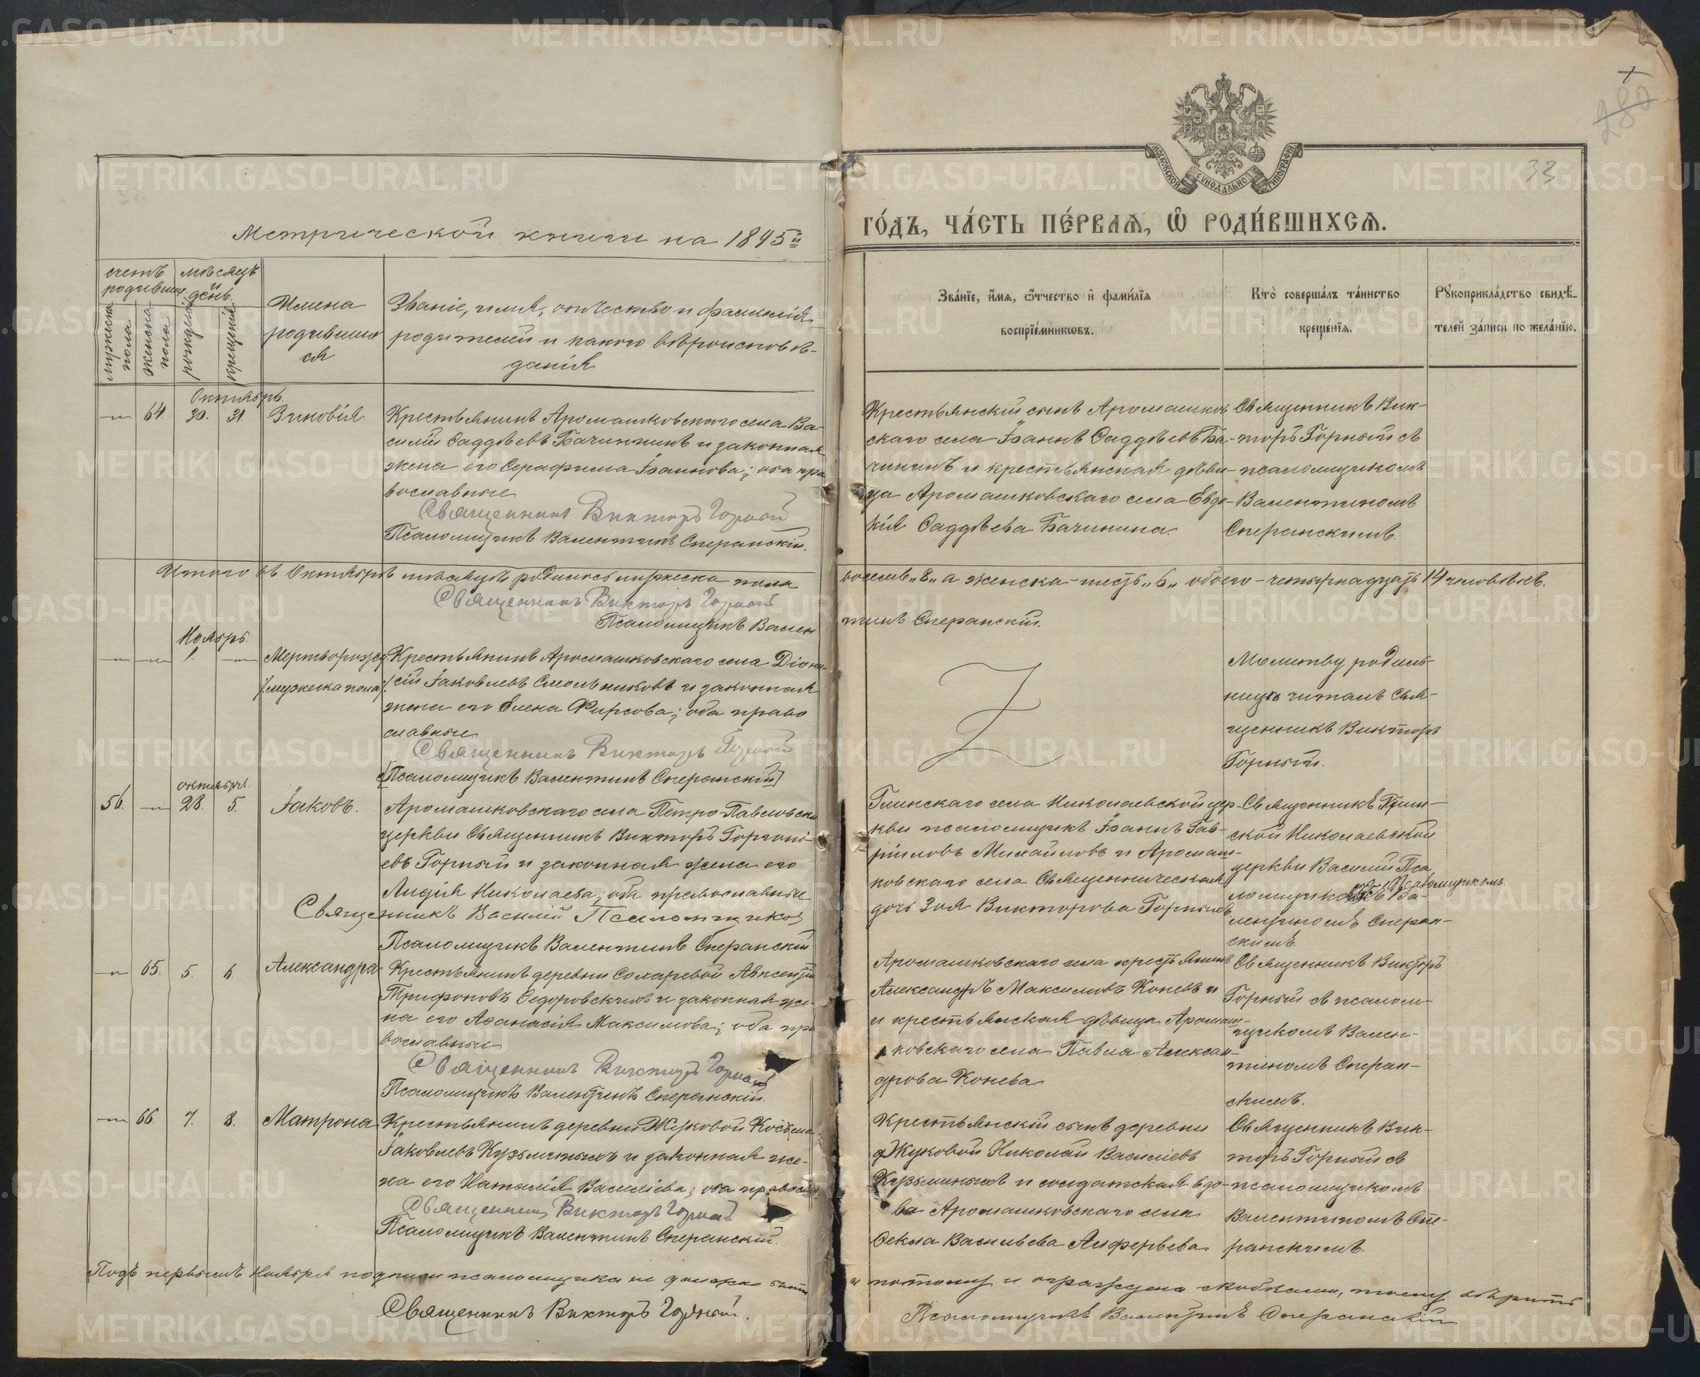 280
33
Метрической книги на 1895й
го́дъ, ча́сть пе́рвая, ѡ҆ роди́вшихся.
счетъ родивших.
мѣсяцъ и день.
мужеска пола
женска пола
рожденія
крещенія
Имена
родивших
ся
Званіе, имя, отчество и фамилія
родителей и какого вѣроисповѣ-
данія
Зва́нїе, и҆́мя, ѻ҆́тчество и҆ фами́лїя
воспрїе́мниковъ.
Кто̀ соверша́лъ та́инство
креще́нїя.
Рꙋкоприкла́дство свидѣ́-
телей за́писи по жела́нїю.
Октябрь.
— 64. 30. 31 Зиновія
Крестьянинъ Аромашковскаго села Ва-
силій Ѳаддѣевъ Бачининъ и законная
жена его Серафима Іоаннова; оба пра
вославные
Священникъ Викторъ Горный
Псаломщикъ Валентинъ Сперанскій.
Крестьянскій сынъ Аромашков
скаго села Іоаннъ Ѳаддѣевъ Ба-
чининъ и крестьянская дѣви
ца Аромашковскаго села Евдо
кія Ѳаддѣева Бачинина.
Священникъ Вик-
торъ Горный съ
псаломщикомъ
Валентиномъ
Сперанскимъ.
Итого въ Октябрѣ мѣсяцѣ родилось мужеска пола восемь „8„ а женска - шесть „6„ обоего - четырнадцать 14 человѣкъ.
Священникъ Викторъ Горный
Псаломщикъ Вален тинъ Сперанскій.
Ноябрь.
— — 1. — Мертворожд
/мужеска пола/
Крестьянинъ Аромашковскаго села Діони
сій Іаковлевъ Смольниковъ и законная
жена его Елена Фирсова; оба право
славные
Священникъ Викторъ Горный
[Псаломщикъ Валентинъ Сперанскій]
Молитву родиль-
ницѣ читалъ Свя-
щенникъ Викторъ
Горный.
октября
56. — 28. 5. Іаковъ.
Аромашковскаго села Петро-Павловской
церкви Священникъ Викторъ Горгоні-
евъ Горный и законная жена его
Лидія Николаева; оба православные
Священникъ Василій
Псаломщикъ Валентинъ Сперанскій
Глинскаго села Николаевской цер-
кви псаломщикъ Іоаннъ Гав-
ріиловъ Михайловъ и Аромаш-
ковскаго села Священническая
дочь Зоя Викторова Горныхъ
Священникъ Глин-
ской Николаевской
церкви Василій
съ Псаломщикомъ
Ва-
лентиномъ Сперан-
скимъ
— 65. 5. 6. Александра
Крестьянинъ деревни Сохаревой Авксентій
Трифоновъ Ѳедоровскихъ и законная же-
на его Аѳанасія Максимова; оба пра
вославные
Священникъ Викторъ Горный
Псаломщикъ Валентинъ Сперанскій.
Аромашковскаго села крестьянинъ
Александръ Максимовъ Коневъ и
и крестьянская дѣвица Аромаш-
ковскаго села Павла Алексан-
дрова Конева
Священникъ Викторъ
Горный съ псалом-
щикомъ Вален-
тиномъ Сперан-
скимъ.
— 66. 7. 8. Матрона
Крестьянинъ деревни Жуковой Косьма
Іаковлевъ Кузьминыхъ и законная же-
на его Наталія Василіева; оба правосл
Священникъ Викторъ Горный
Псаломщикъ Валентинъ Сперанскій.
Крестьянскій сынъ деревни
Жуковой Николай Василіевъ
Кузьминыхъ и солдатская вдо-
ва Аромашковскаго села
Ѳекла Васильева Алферьева
Священникъ Вик-
торъ Горный съ
псаломщикомъ
Валентиномъ Спе-
ранскимъ
Подъ первымъ Ноября подписи псаломщика не должно быть а потому и ограждена скобками, тому вѣрить
Священникъ Викторъ Горный.
Псаломщикъ Валентинъ Сперанскій
METRIKI.GASO-URAL.RU